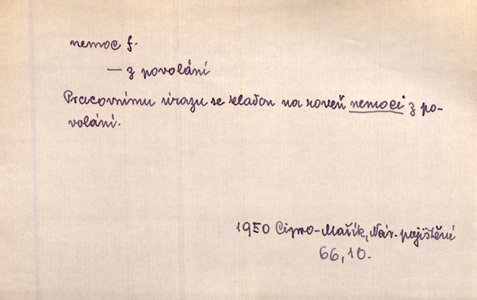 nemoc f.
— z povolání
Pracovnímu úrazu se kladou na roveň nemoci z po-
volání.
1950 Cipro-Mašík, Nár. pojištění
66, 10.